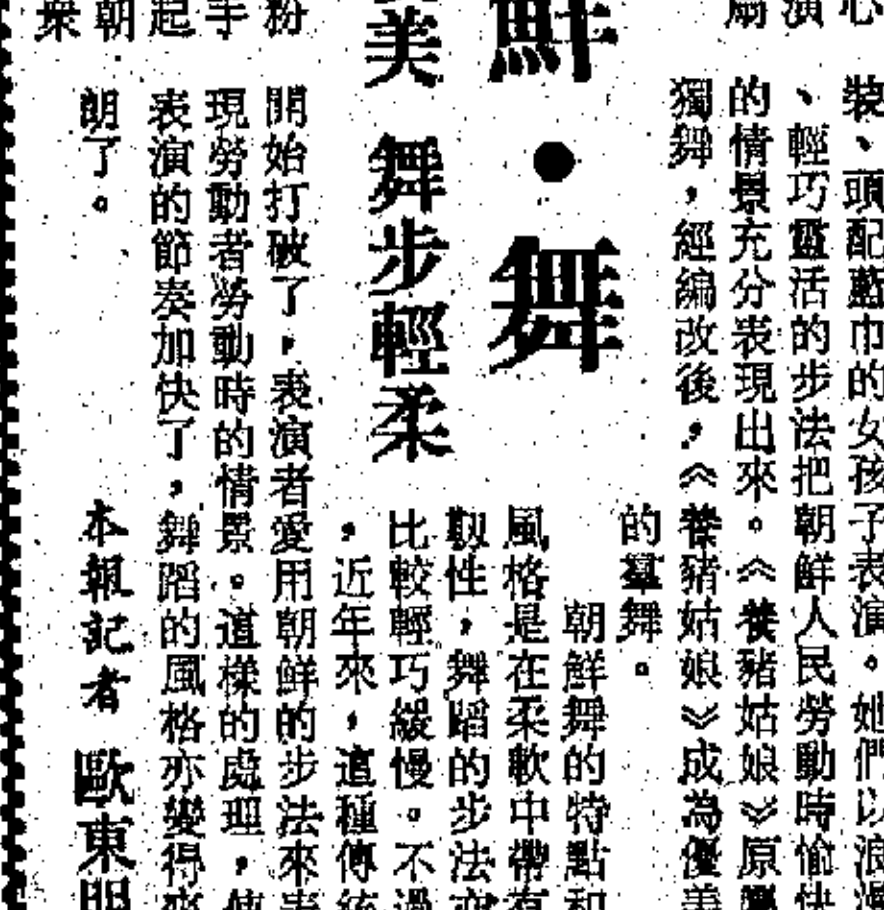 心
裝、頭配藍巾的女孩子表演。她們以浪漫
演
、輕巧靈活的步法把朝鮮人民勞動時愉快
扇
的情景充分表現出來。《養豬姑娘》原屬
獨舞，經編改後，《養豬姑娘》成為優美
的羣舞。
鮮・舞
美 舞步輕柔
朝鮮舞的特點和
風格是在柔軟中帶有
靱性，舞蹈的步法亦
比較輕巧緩慢。不過
，近年來，這種傳統
粉
開始打破了，表演者愛用朝鮮的步法來表
手
現勞動者勞動時的情景。這樣的處理，使
起
表演的節奏加快了，舞蹈的風格亦變得爽
朝
朗了。
衆
本報記者 歐東明